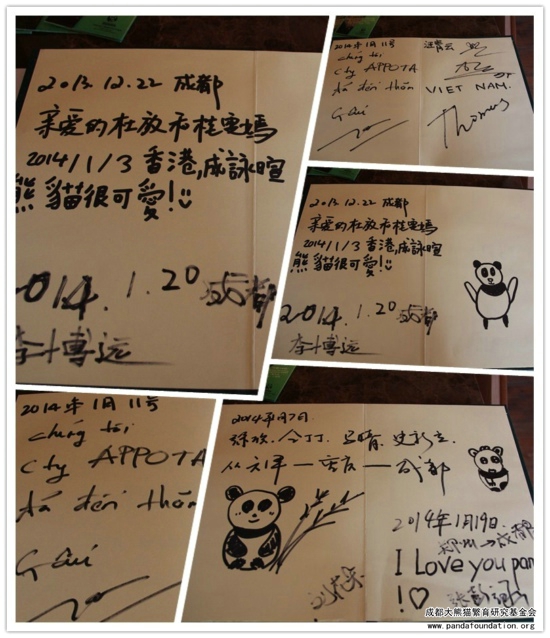 2013.12.22 成都
亲爱的杜放和桂雪嫣
2014/1/3 香港,成詠暄
熊貓很可愛!
2014.1.20 成都
李博远
2014年1月11号
chúng tôi
cty APPOTA
đã đến thăm
VIET NAM.
Thomas
2013.12.22 成都
亲爱的杜放和桂雪嫣
2014/1/3 香港,成詠暄
熊貓很可愛!
2014.1.20 成都
李博远
2014年1月11号
chúng tôi
cty APPOTA
đã đến thăm
2014年1月7日
重庆—成都
2014年1月19日.
郑州→成都
I Love you pan
!♡
成都大熊猫繁育研究基金会
www.pandafoundation.org